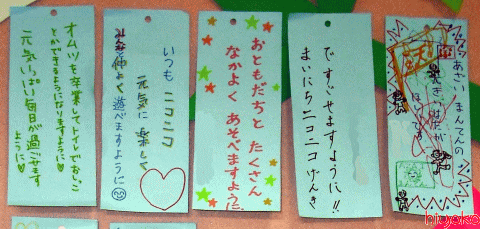 オムツを卒業してトイレでおしご
とができるようになりますように♡
元気いっぱい毎日が過ごせます
ように♡
いつも ニコニコ
元気に 楽しく
みんな仲よく 遊べますように
おともだちと たくさん
なかよく あそべますように
まいにちニコニコ げんき
ですごせますように!!
まんてんの
hiyoko